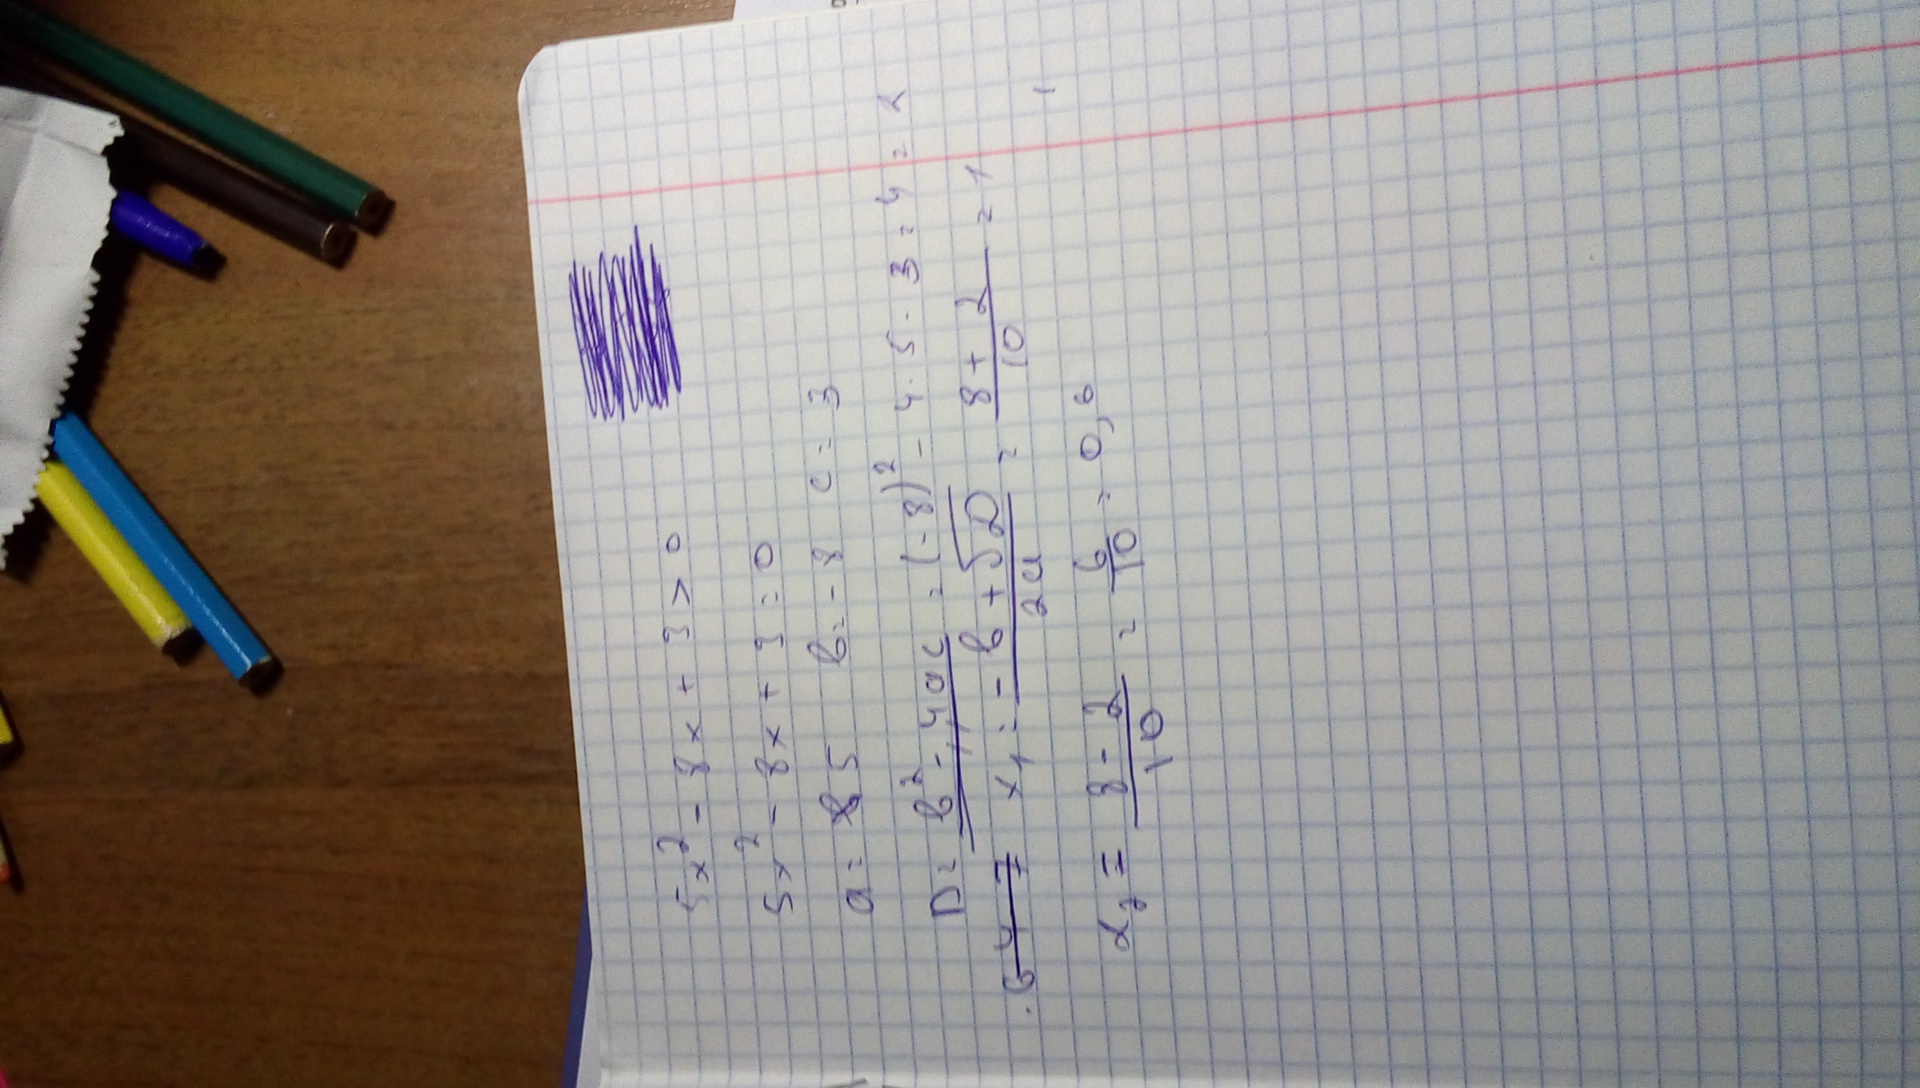 5x² - 8x + 3 > 0
5x² - 8x + 3 = 0
a = 5 в = - 8 c = 3
D = в² - 4ac = (-8)² - 4 · 5 · 3 = 4 = 2
x₁ = - в + √D / 2a = 8 + 2 / 10 = 1
x₂ = 8 - 2 / 10 = 6 / 10 = 0,6